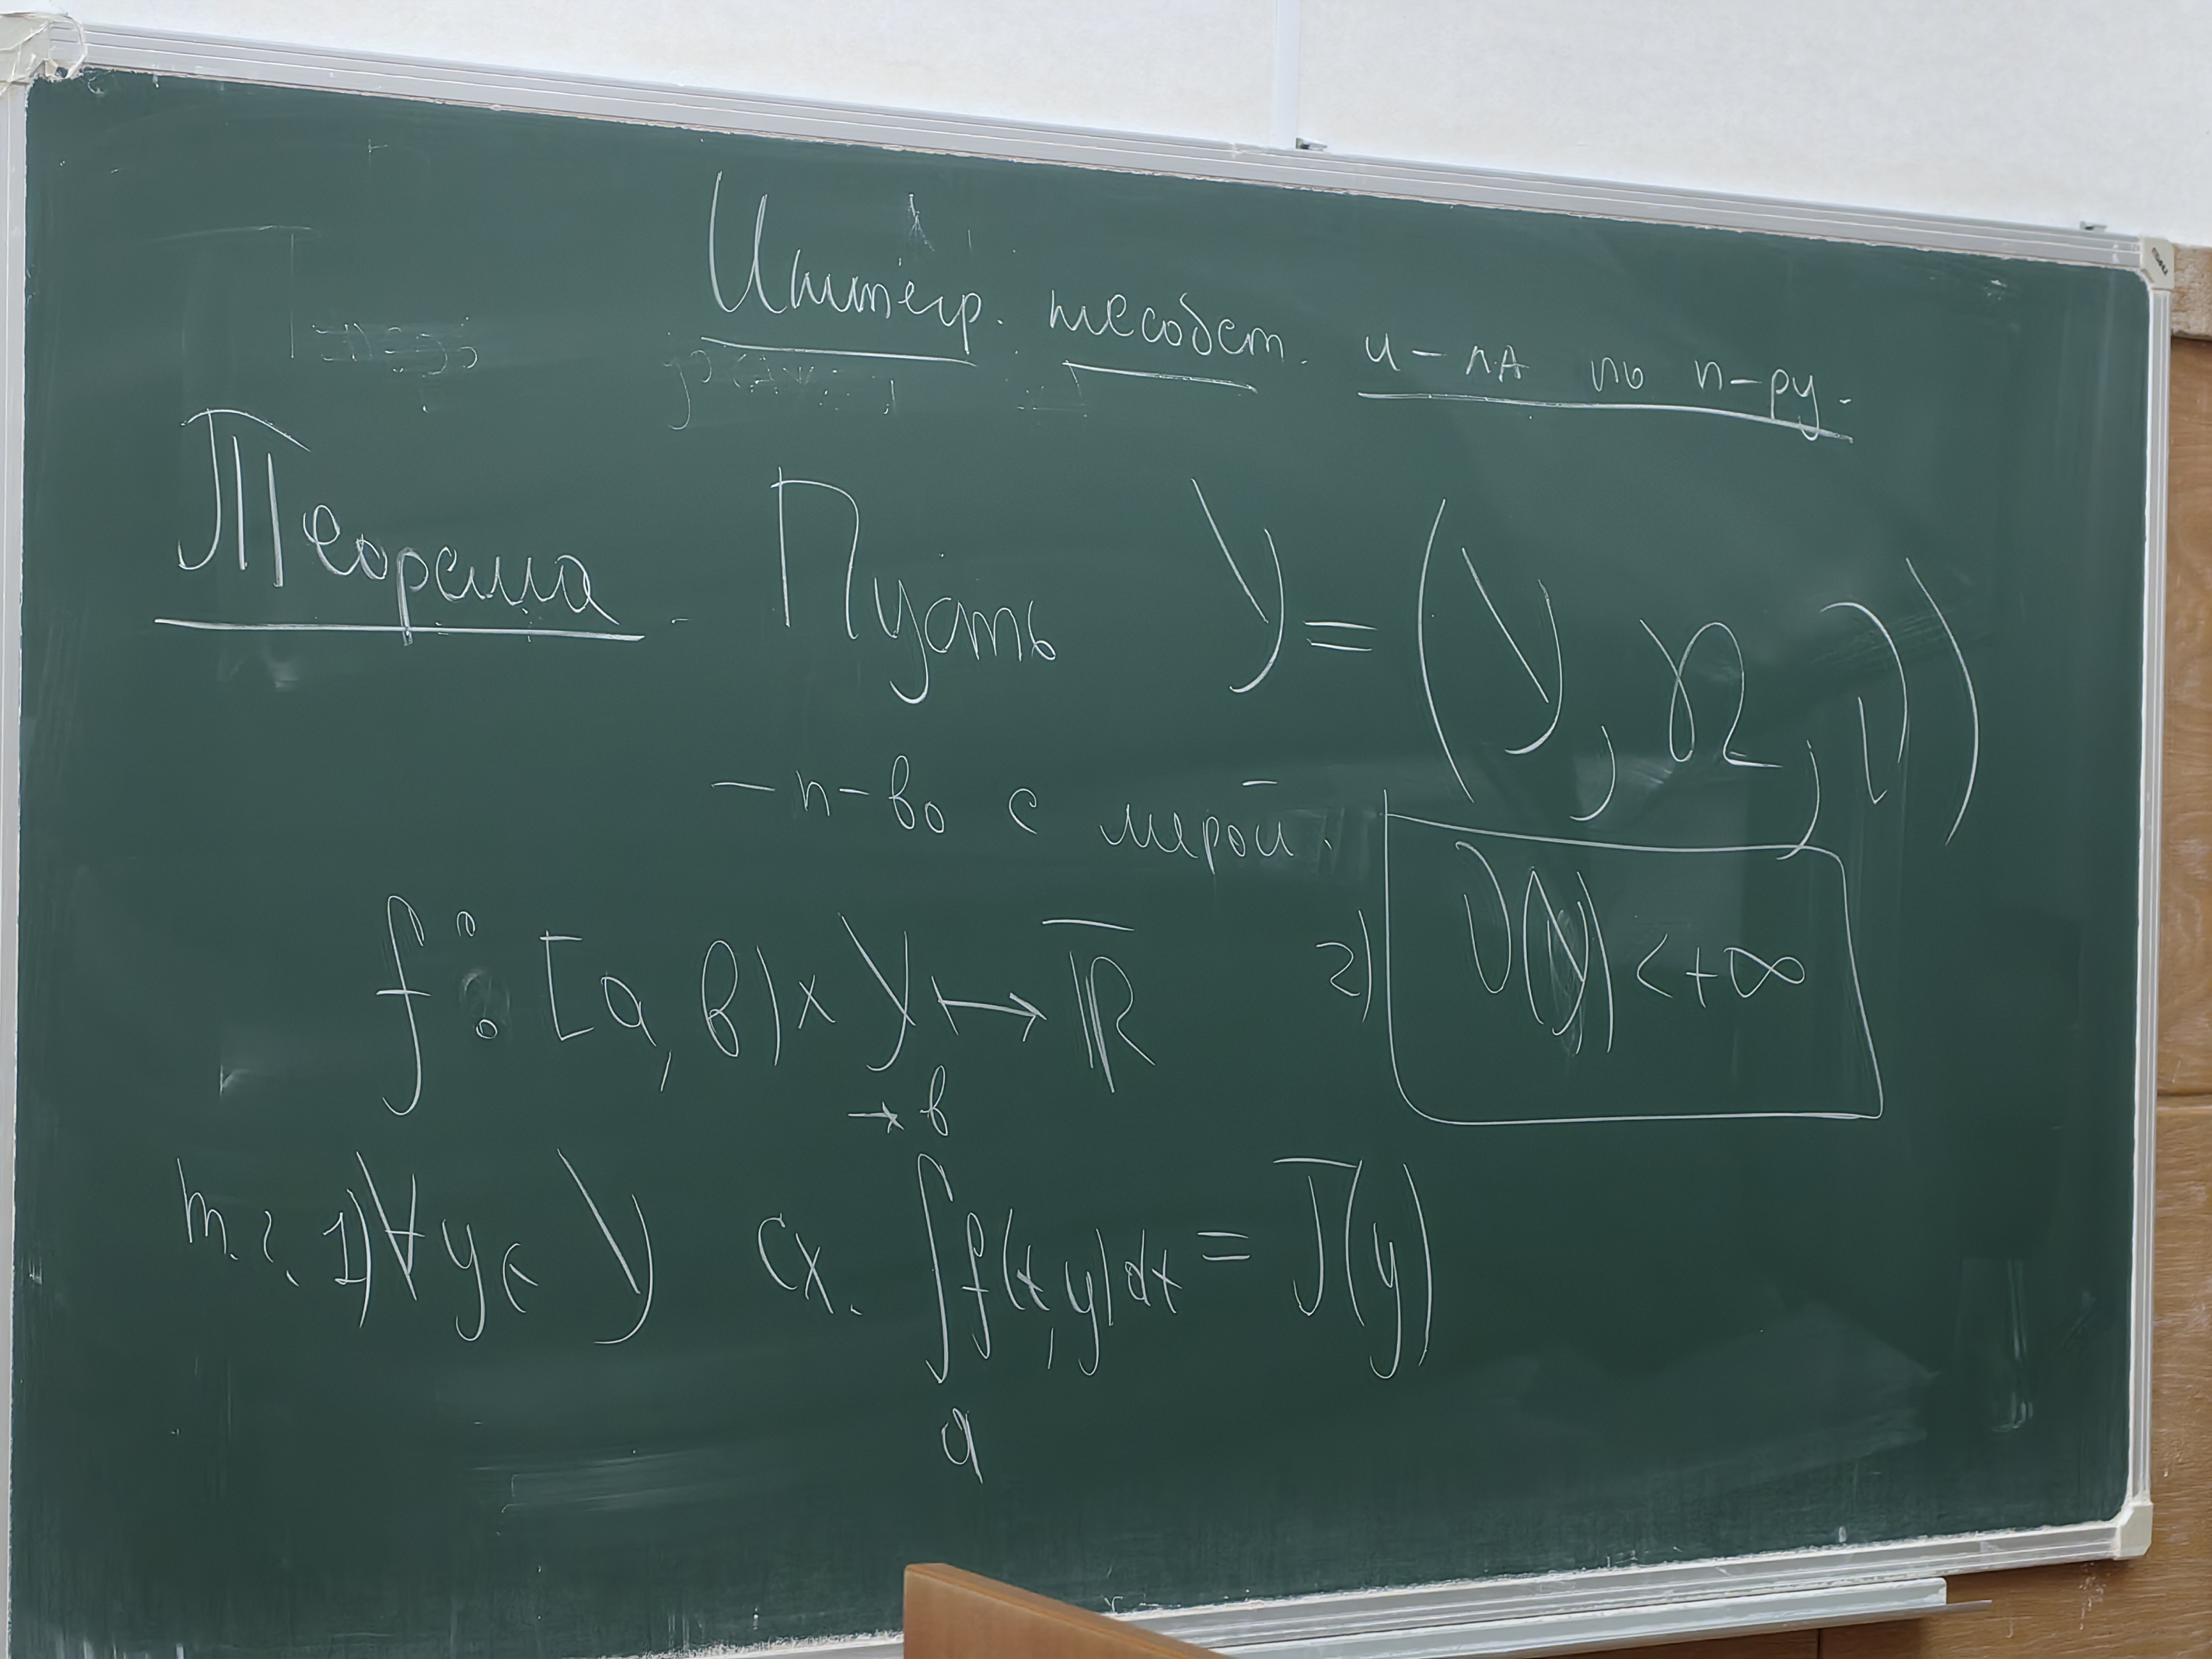 Интегр. несобст. и-ла по п-ру.
Теорема. Пусть Y = (Y, 𝔑, ν)
– п-во с мерой.
f : [a, b) × Y ↦ R̅
2) ν(Y) < +∞
т.ч. 1) ∀ y ∈ Y сх. ∫ₐ^{→b} f(x, y) dx = J(y)